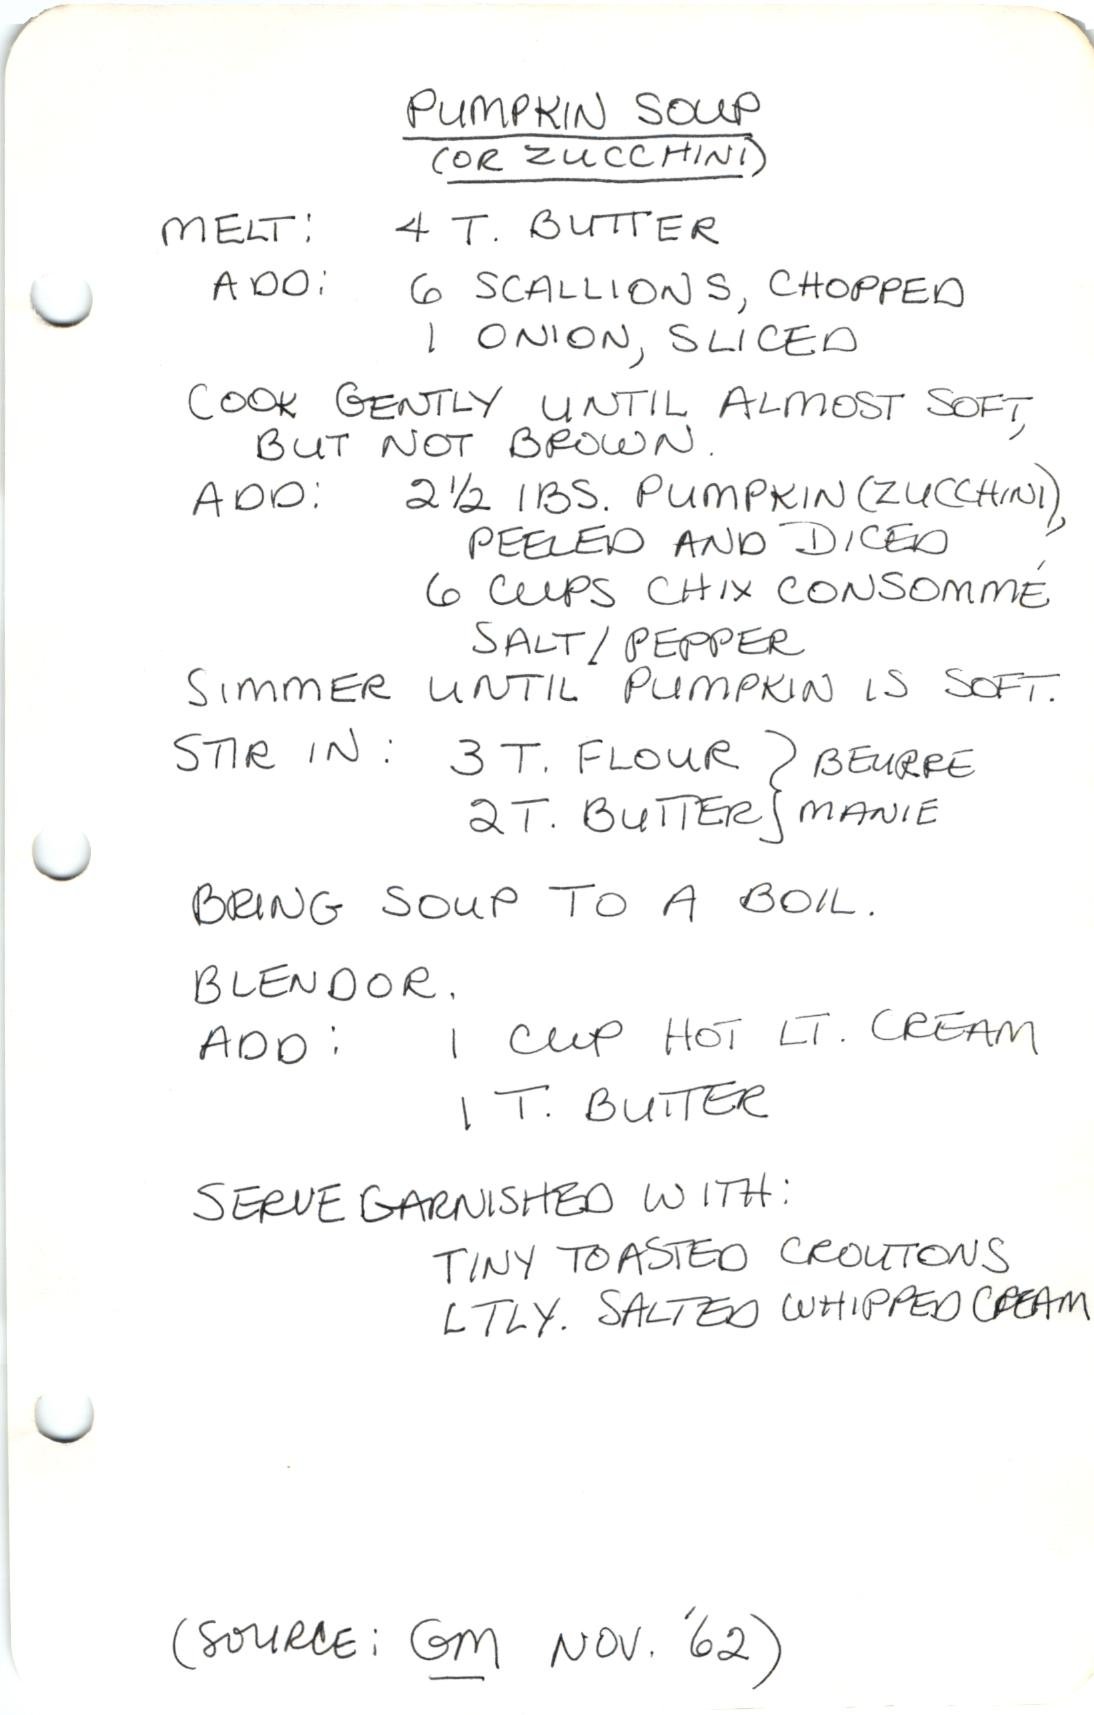 PUMPKIN SOUP
(OR ZUCCHINI)
MELT: 4 T. BUTTER
ADD: 6 SCALLIONS, CHOPPED
1 ONION, SLICED
COOK GENTLY UNTIL ALMOST SOFT,
BUT NOT BROWN.
ADD: 2 1/2 lBS. PUMPKIN (ZUCCHINI),
PEELED AND DICED
6 CUPS CHIX CONSOMMÉ
SALT/PEPPER
SIMMER UNTIL PUMPKIN IS SOFT.
STIR IN: 3 T. FLOUR } BEURRE
2 T. BUTTER } MANIE
BRING SOUP TO A BOIL.
BLENDOR.
ADD: 1 CUP HOT LT. CREAM
1 T. BUTTER
SERVE GARNISHED WITH:
TINY TOASTED CROUTONS
LTLY. SALTED WHIPPED CREAM
(SOURCE: GM NOV. '62)